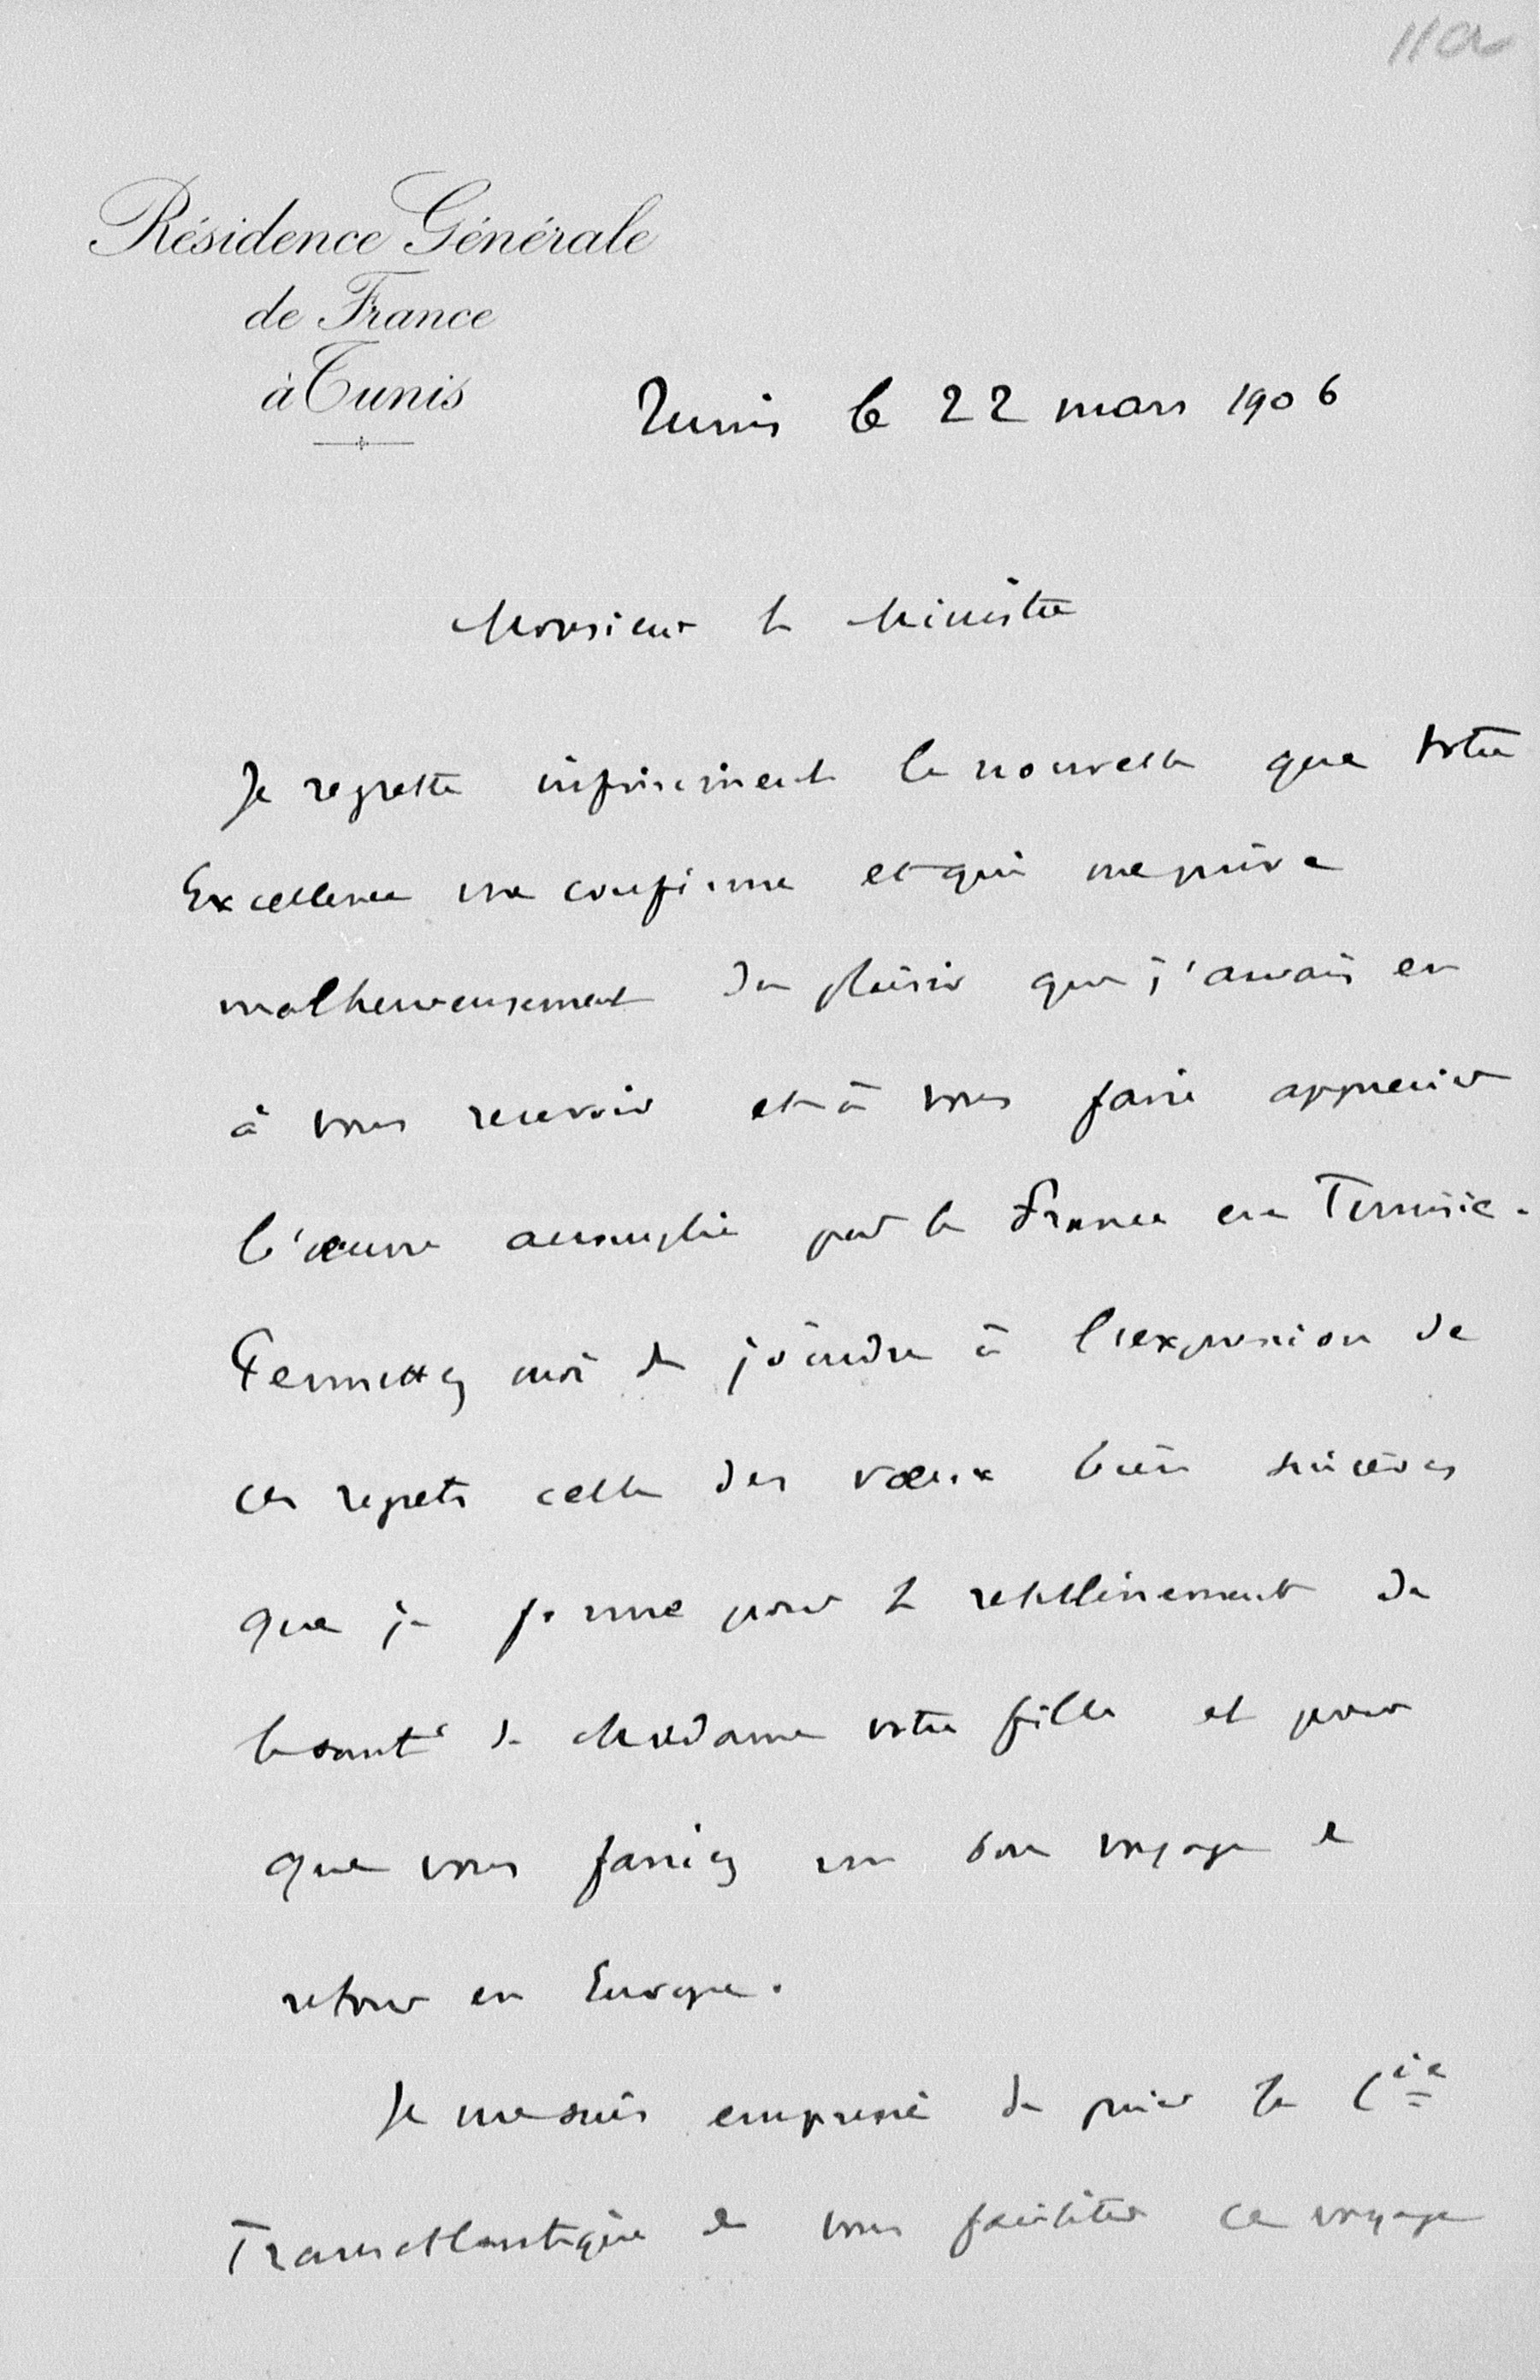 11a
Résidence Générale
de France
à Tunis
Tunis le 22 mars 1906
Monsieur le Ministre
Je regrette infiniment la nouvelle que Votre
Excellence me confirme et qui me prive
malheureusement du plaisir que j'aurais eu
à vous recevoir et à vous faire apprécier
l'œuvre accomplie par la France en Tunisie.
Permettez moi de joindre à l'expression de
ces regrets celle des vœux bien sincères
que je forme pour le rétablissement de
la santé de Madame votre fille et pour
que vous fassiez un bon voyage de
retour en Europe.
Je me suis empressé de prier la Cie
Transatlantique de vous faciliter ce voyage